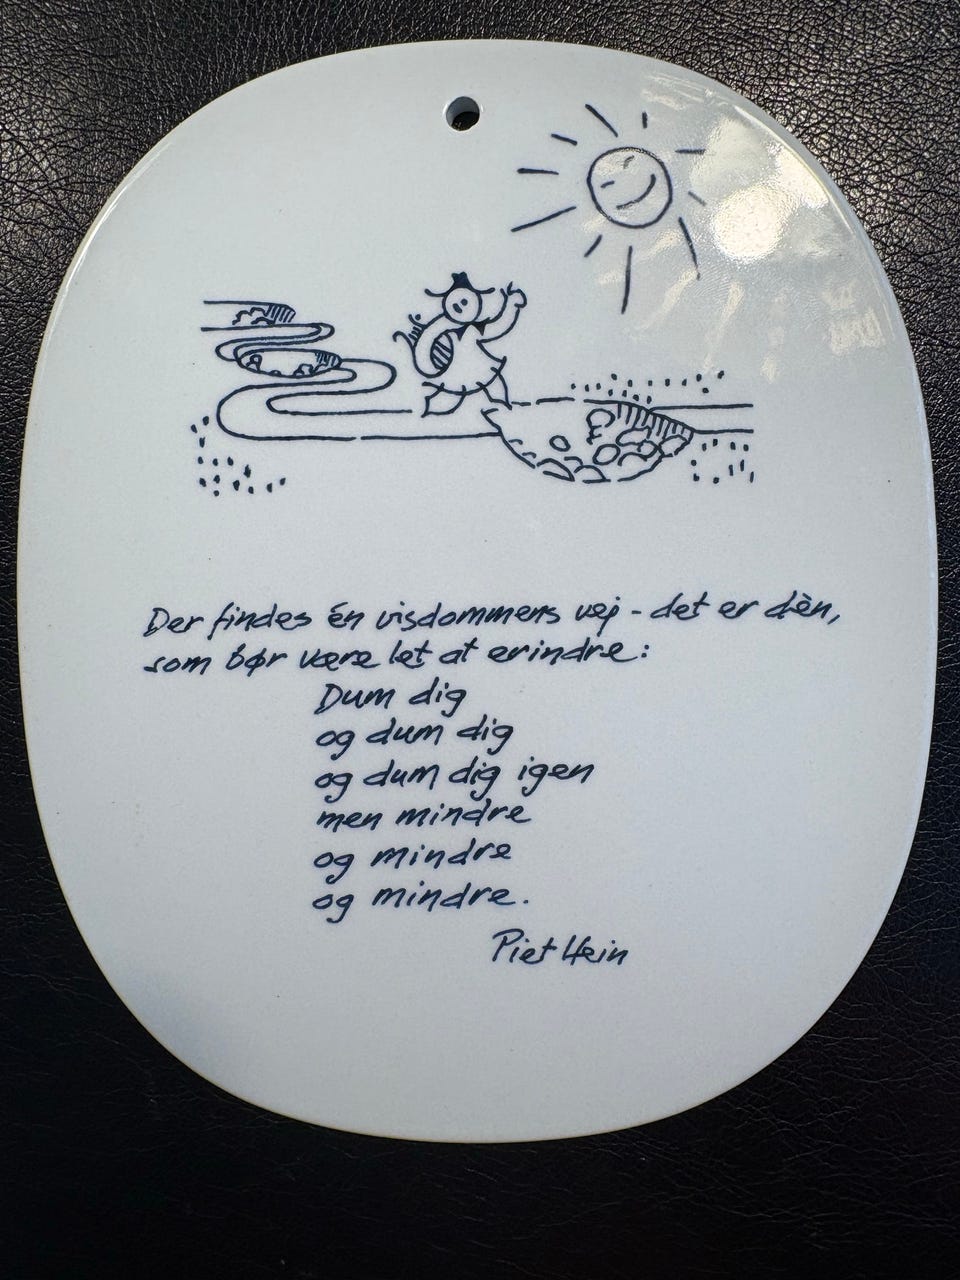 Der findes én visdommens vej - det er dèn,
som bør være let at erindre:
Dum dig
og dum dig
og dum dig igen
men mindre
og mindre
og mindre.
Piet Hein